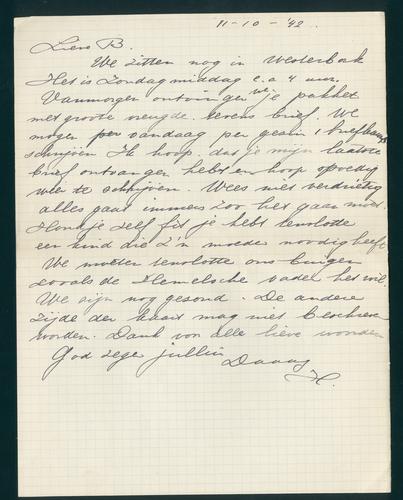 11-10-'42.
Lieve B.
We zitten nog in Westerbork
Het is Zondagmiddag c.a 4 uur.
Vanmorgen ontvingen we je pakket
met groote vreugde. tevens brief. We
mogen per vandaag per gezin 1 briefkaart
schrijven Ik hoop. dat je mijn laatste
brief ontvangen hebt en hoop spoedig
weer te schrijven. Wees niet verdrietig
alles gaat immers zoo het gaan moet.
Houd je zelf fit je hebt tenslotte
een kind die z'n moeder noodig heeft
We moeten tenslotte ons buigen
zooals de Hemelsche vader het wil.
We zijn nog gezond. De andere
zijde der kaart mag niet beschreven
worden. Dank voor alle lieve woorden
God zege jullie
Daaag
H.